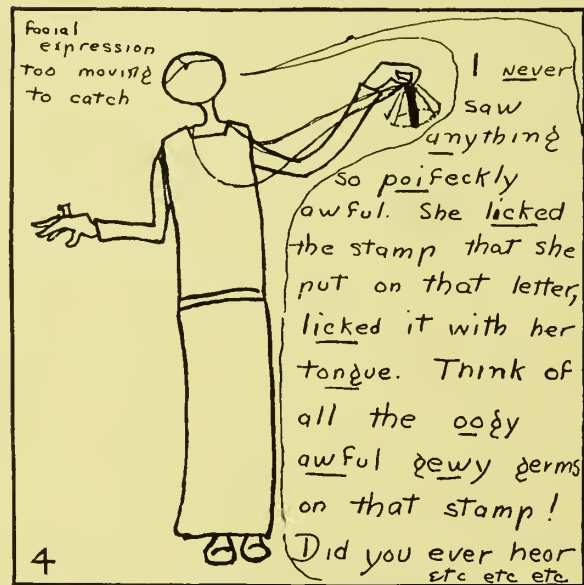 facial
expression
too moving
to catch
I never
saw
anything
so poifeckly
awful. She licked
the stamp that she
put on that letter,
licked it with her
tongue. Think of
all the oogy
awful gewy germs
on that stamp!
Did you ever hear
etc etc etc
4